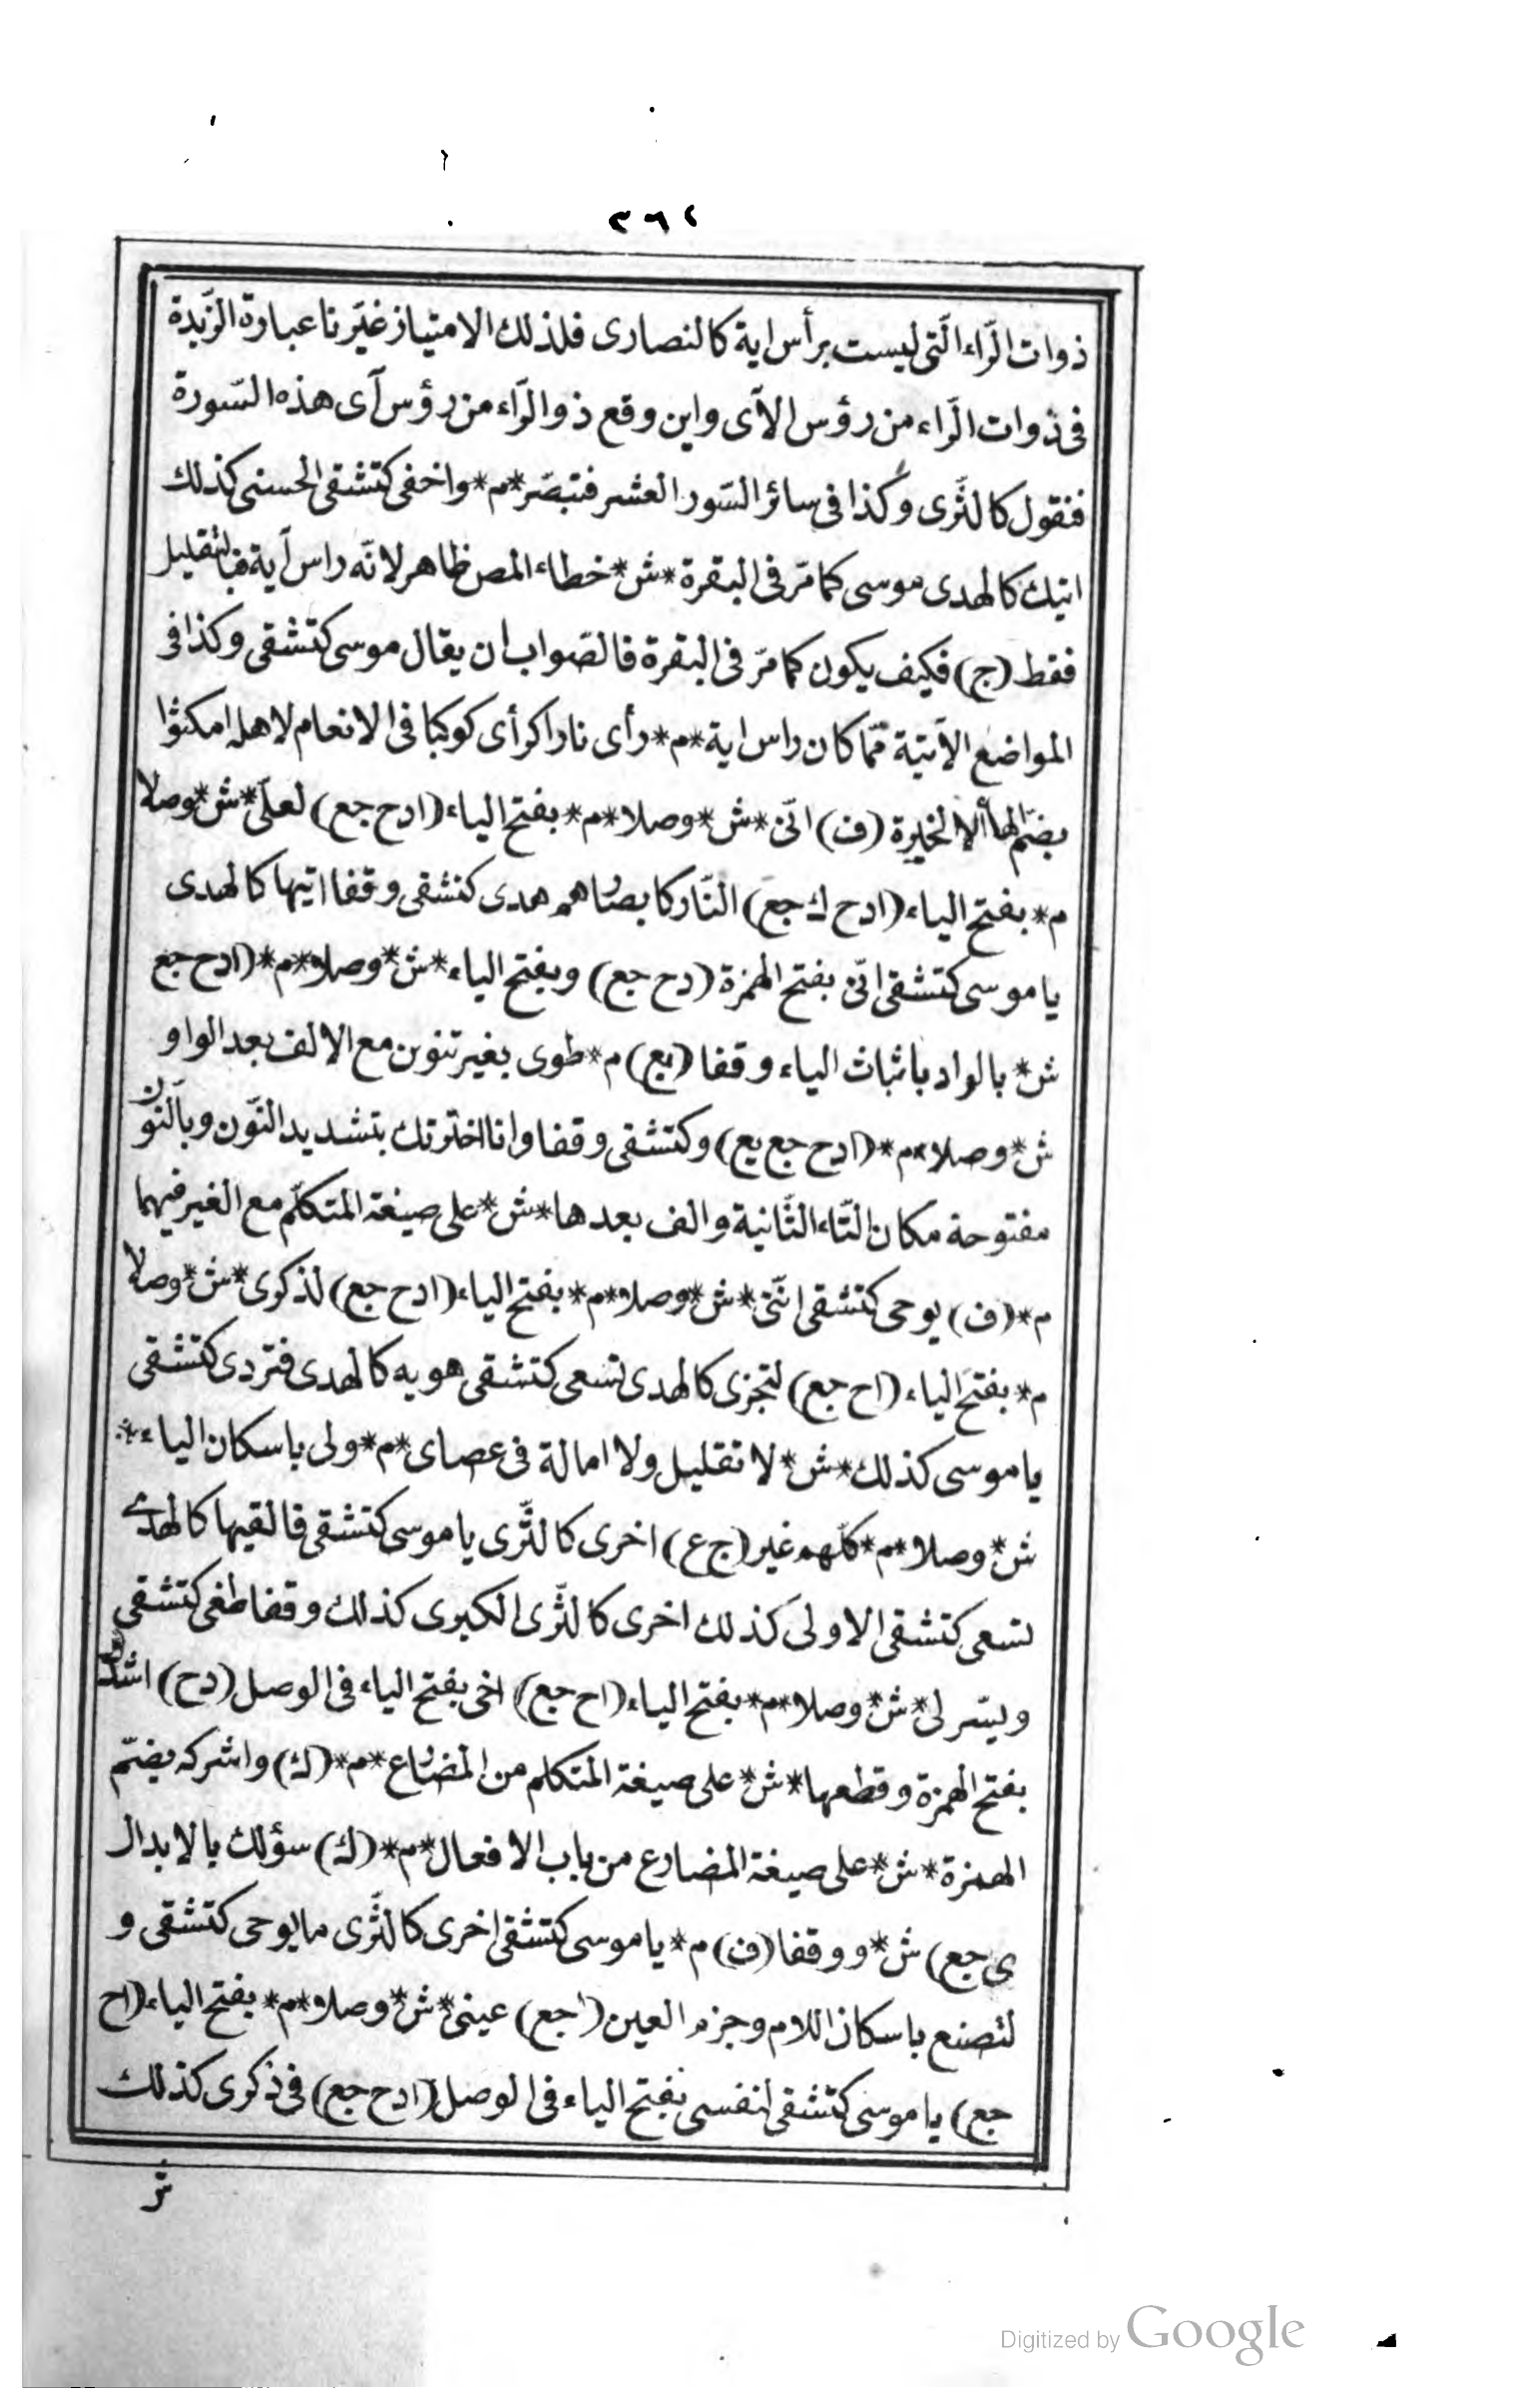 ٣٦٤
ذوات الرّاء الّتى ليست برأس اية كالنصارى فلذلك الامتياز غيّرنا عبارة الزّبدة
فى ذوات الرّاء من رؤس الآى واين وقع ذو الرّاء من رؤس آى هذه السّورة
فنقول كالثّرى وكذا فى سائر السّور العشر فتبصّر*م*واخفى كتشقى الحسنى كذلك
اتيك كالهدى موسى كما مرّ فى البقرة*ش*خطاء المص ظاهر لانّه راس آية فبالتقليل
فقط (ج) فكيف يكون كما مرّ فى البقرة فالصّواب ان يقال موسى كتشقى وكذا فى
المواضع الآتية ممّا كان راس اية*م*رأى نارا كرأى كوكبا فى الانعام لاهله امكثوا
بضمّ الهاء الاخيرة (ف) انّى*ش*وصلا*م*بفتح الياء (ادح جع) لعلّى*ش*وصلا
م*بفتح الياء (ادح ك جع) النّار كابصارهم هدى كتشقى وقفا اتيها كالهدى
يا موسى كتشقى انّى بفتح الهمزة (دح جع) وبفتح الياء*ش*وصلا*م*(ادح جع
ش*بالواد باثبات الياء وقفا (يع) م*طوى بغير تنوين مع الالف بعد الواو
ش*وصلا*م*(ادح جع يع) وكتشقى وقفا وانا اخترتك بتشديد النّون وبالنّون
مفتوحة مكان التّاء الثّانية والف بعدها*ش*على صيغة المتكلّم مع الغير فيهما
م*(ف) يوحى كتشقى انّنى*ش*وصلا*م*بفتح الياء (ادح جع) لذكرى*ش*وصلا
م*بفتح الياء (اح جع) لتجزى كالهدى تسعى كتشقى هويه كالهدى فتردى كتشقى
يا موسى كذلك*ش*لا تقليل ولا امالة فى عصاى*م*ولى باسكان الياء*
ش*وصلا*م*كلّهم غير (ج ع) اخرى كالثّرى يا موسى كتشقى فالقيها كالهدى
تسعى كتشقى الاولى كذلك اخرى كالثّرى الكبرى كذلك وقفا طغى كتشقى
ويسّر لى*ش*وصلا*م*بفتح الياء (اح جع) اخى بفتح الياء فى الوصل (دح) اشدد
بفتح الهمزة وقطعها*ش*على صيغة المتكلم من المضارع*م*(ك) واشركه بضمّ
الهمزة*ش*على صيغة المضارع من باب الافعال*م*(ك) سؤلك بالابدال
ى جع) ش*ووقفا (ف) م*يا موسى كتشقى اخرى كالثّرى ما يوحى كتشقى و
لتصنع باسكان اللام وجزم العين (جع) عينى*ش*وصلا*م*بفتح الياء (اح
جع) يا موسى كتشقى لنفسى بفتح الياء فى الوصل (ادح جع) فى ذكرى كذلك
Digitized by Google